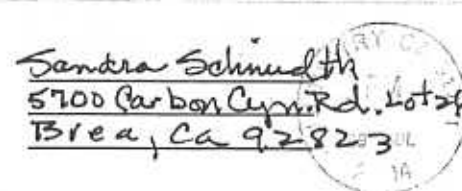 Sandra Schmidth
5700 Carbon Cyn. Rd. Lot 26
Brea, Ca 92823